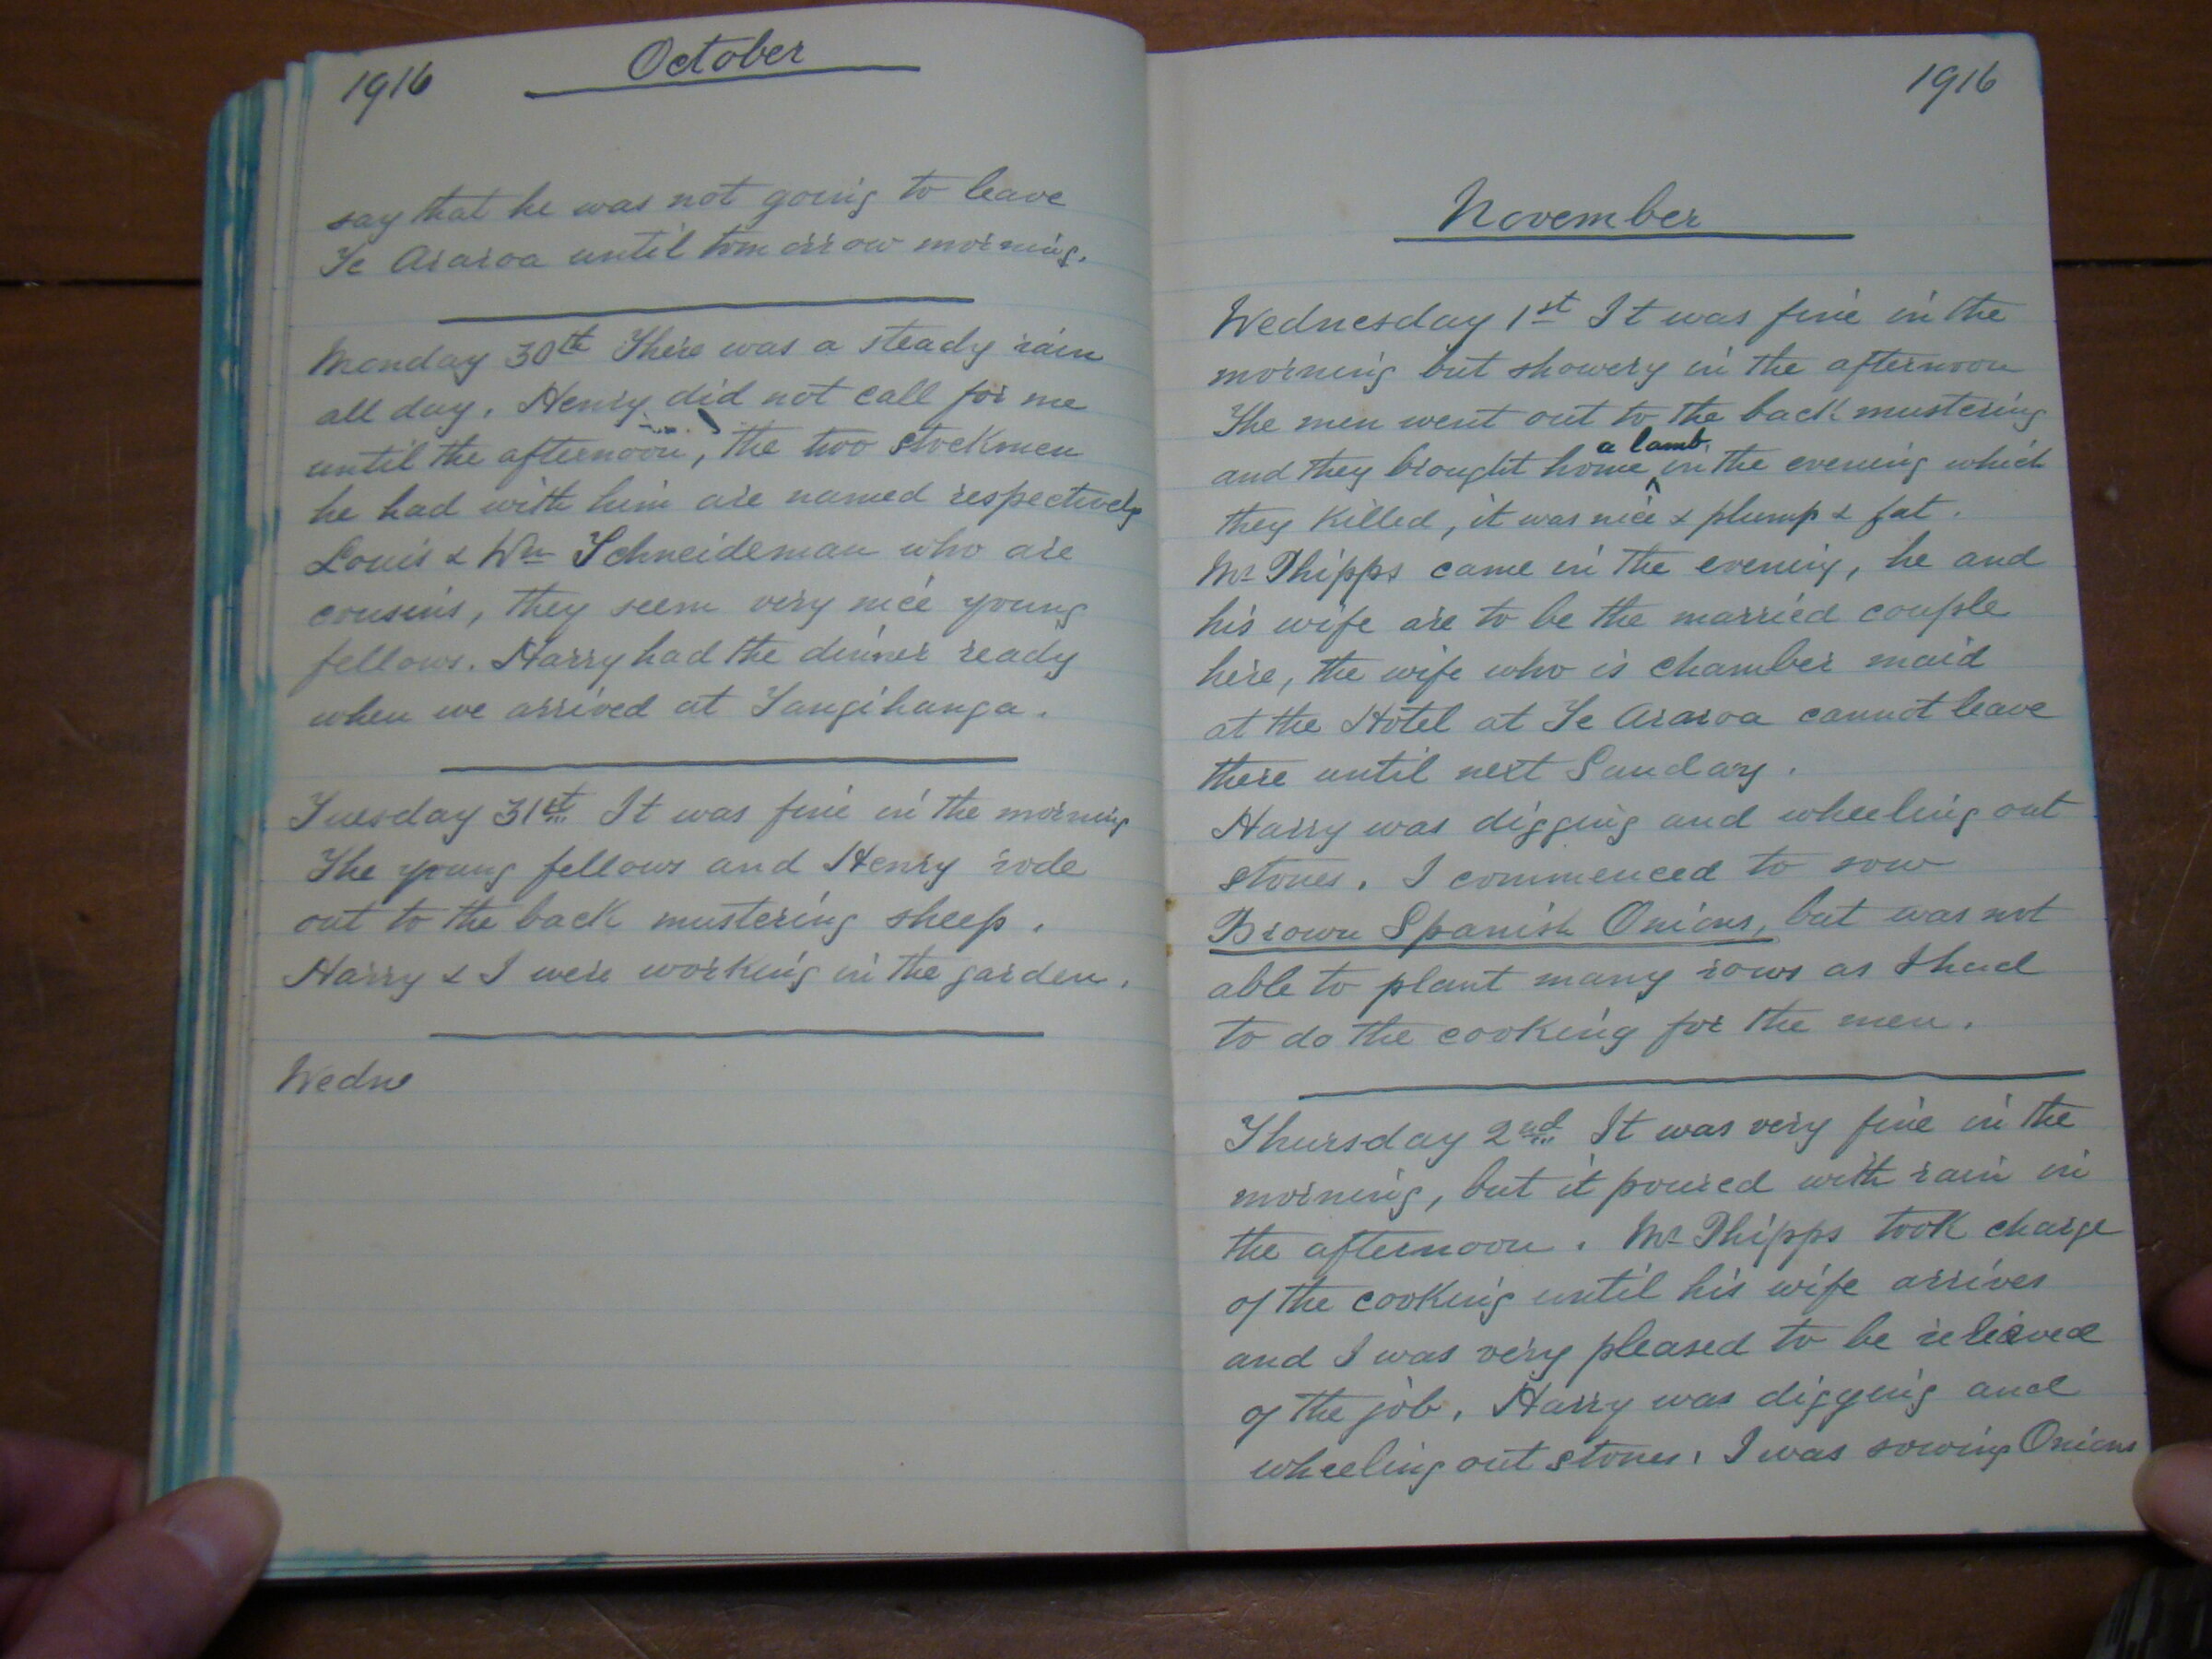 1916
October
say that he was not going to leave
Te Araroa until tomorrow morning.
Monday 30th There was a steady rain
all day. Henry did not call for me
until the afternoon, the two stockmen
he had with him are named respectively
Louis & Wm Schneideman who are
cousins, they seem very nice young
fellows. Harry had the dinner ready
when we arrived at Tangihanga.
Tuesday 31st It was fine in the morning
The young fellows and Henry rode
out to the back mustering sheep.
Harry & I were working in the garden.
Wedne
1916
November
Wednesday 1st It was fine in the
morning but showery in the afternoon
The men went out to the back mustering
and they brought home a lamb in the evening which
they killed, it was nice & plump & fat.
Mr Phipps came in the evening, he and
his wife are to be the married couple
here, the wife who is chamber maid
at the Hotel at Te Araroa cannot leave
there until next Sunday.
Harry was digging and wheeling out
stones. I commenced to sow
Brown Spanish Onions, but was not
able to plant many rows as I had
to do the cooking for the men.
Thursday 2nd It was very fine in the
morning, but it poured with rain in
the afternoon. Mr Phipps took charge
of the cooking until his wife arrives
and I was very pleased to be relieved
of the job. Harry was digging and
wheeling out stones. I was sowing Onions